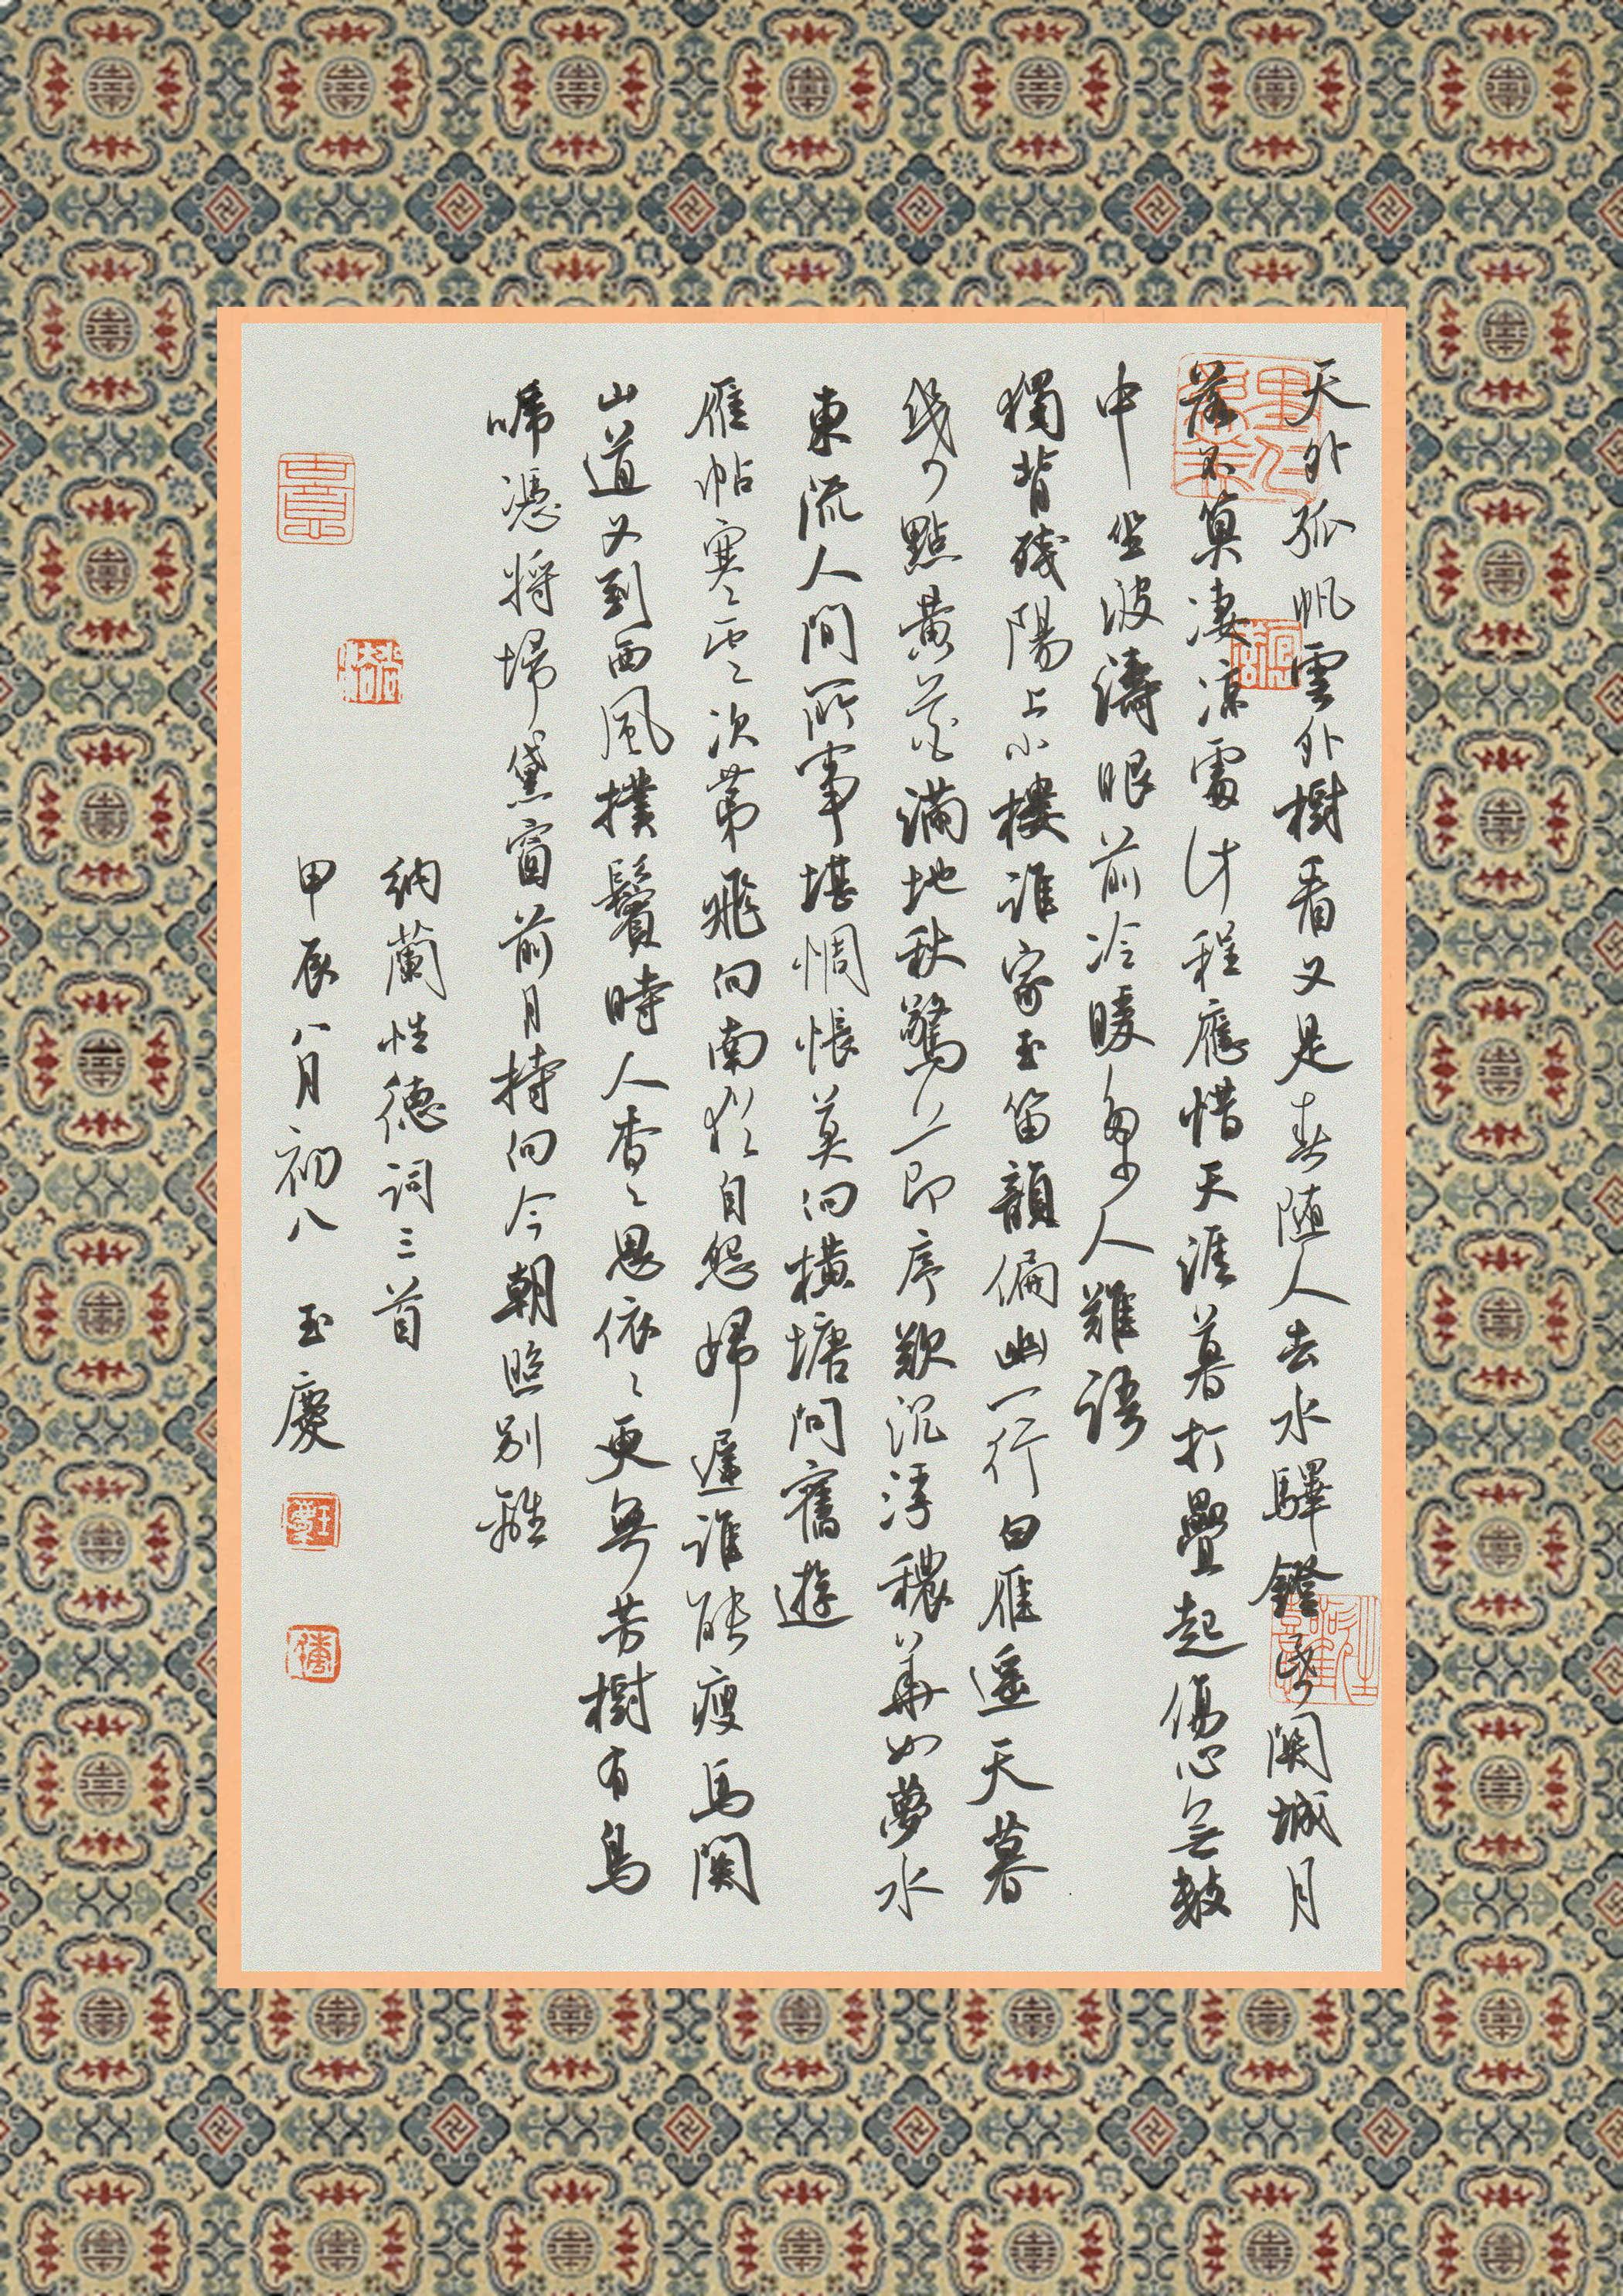 天外孤帆雲外樹看又是春隨人去水驛鐙昏關城月
落不算凄涼處計程應惜天涯暮打疊起傷心無數
中坐波濤眼前冷暖多少人難語
獨背殘陽上小樓誰家玉笛韻偏幽一行白雁遥天暮
幾點黃花滿地秋驚節序歎沉浮穠華如夢水
東流人間所事堪惆悵莫向橫塘問舊遊
雁帖寒雲次第飛向南猶自怨歸遲誰能瘦馬關
山道又到西風撲鬢時人杳〻思依〻更無芳樹有烏
啼憑將掃黛窗前月持向今朝照別離
納蘭性德詞三首
甲辰八月初八 玉慶
里仁為美